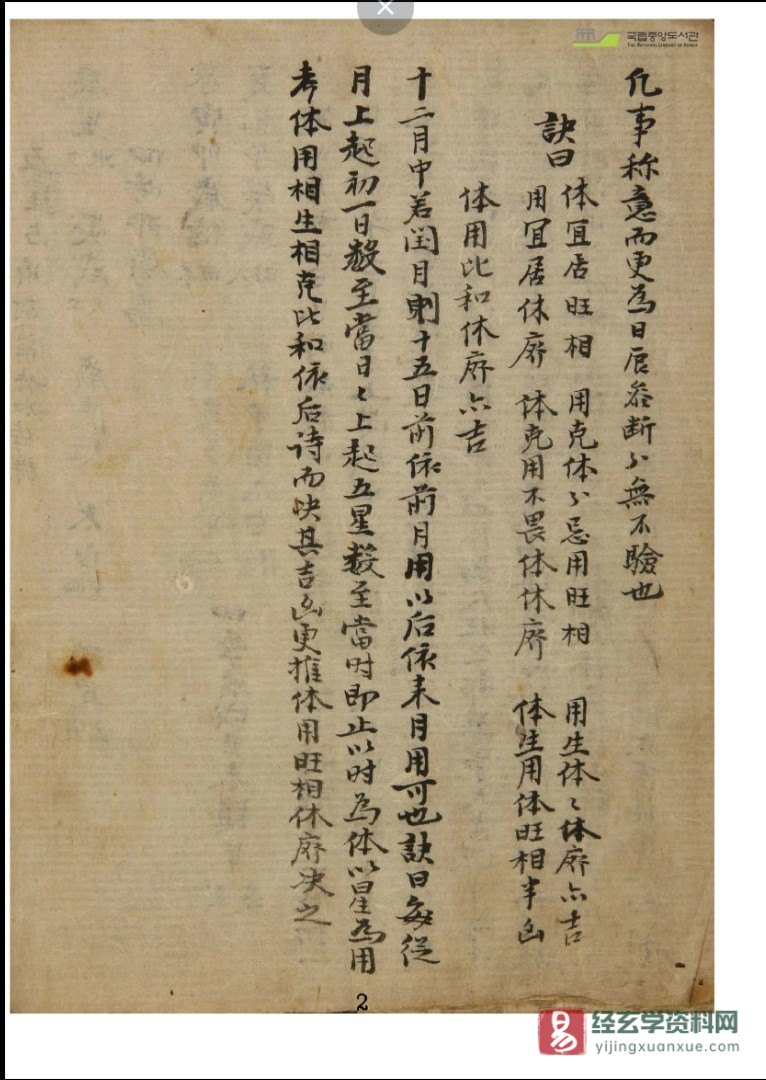 국립중앙도서관
THE NATIONAL LIBRARY OF KOREA
凡事称意而更為日辰參断亦無不驗也
訣曰
体宜居旺相 用克体亦忌用旺相 用生体〻体廃亦吉
用宜居休廃 体克用不畏体休廃 体生用体旺相半凶
体用比和休廃亦吉
十二月中若闰月則十五日前依前月用以后依来月用可也訣曰每從
月上起初一日数至當日〻上起五星数至當时即止以时為体以星為用
考体用相生相克比和依后诗而决其吉凶更推体用旺相休廃决之
2
易
经玄学资料网
yijingxuanxue.com